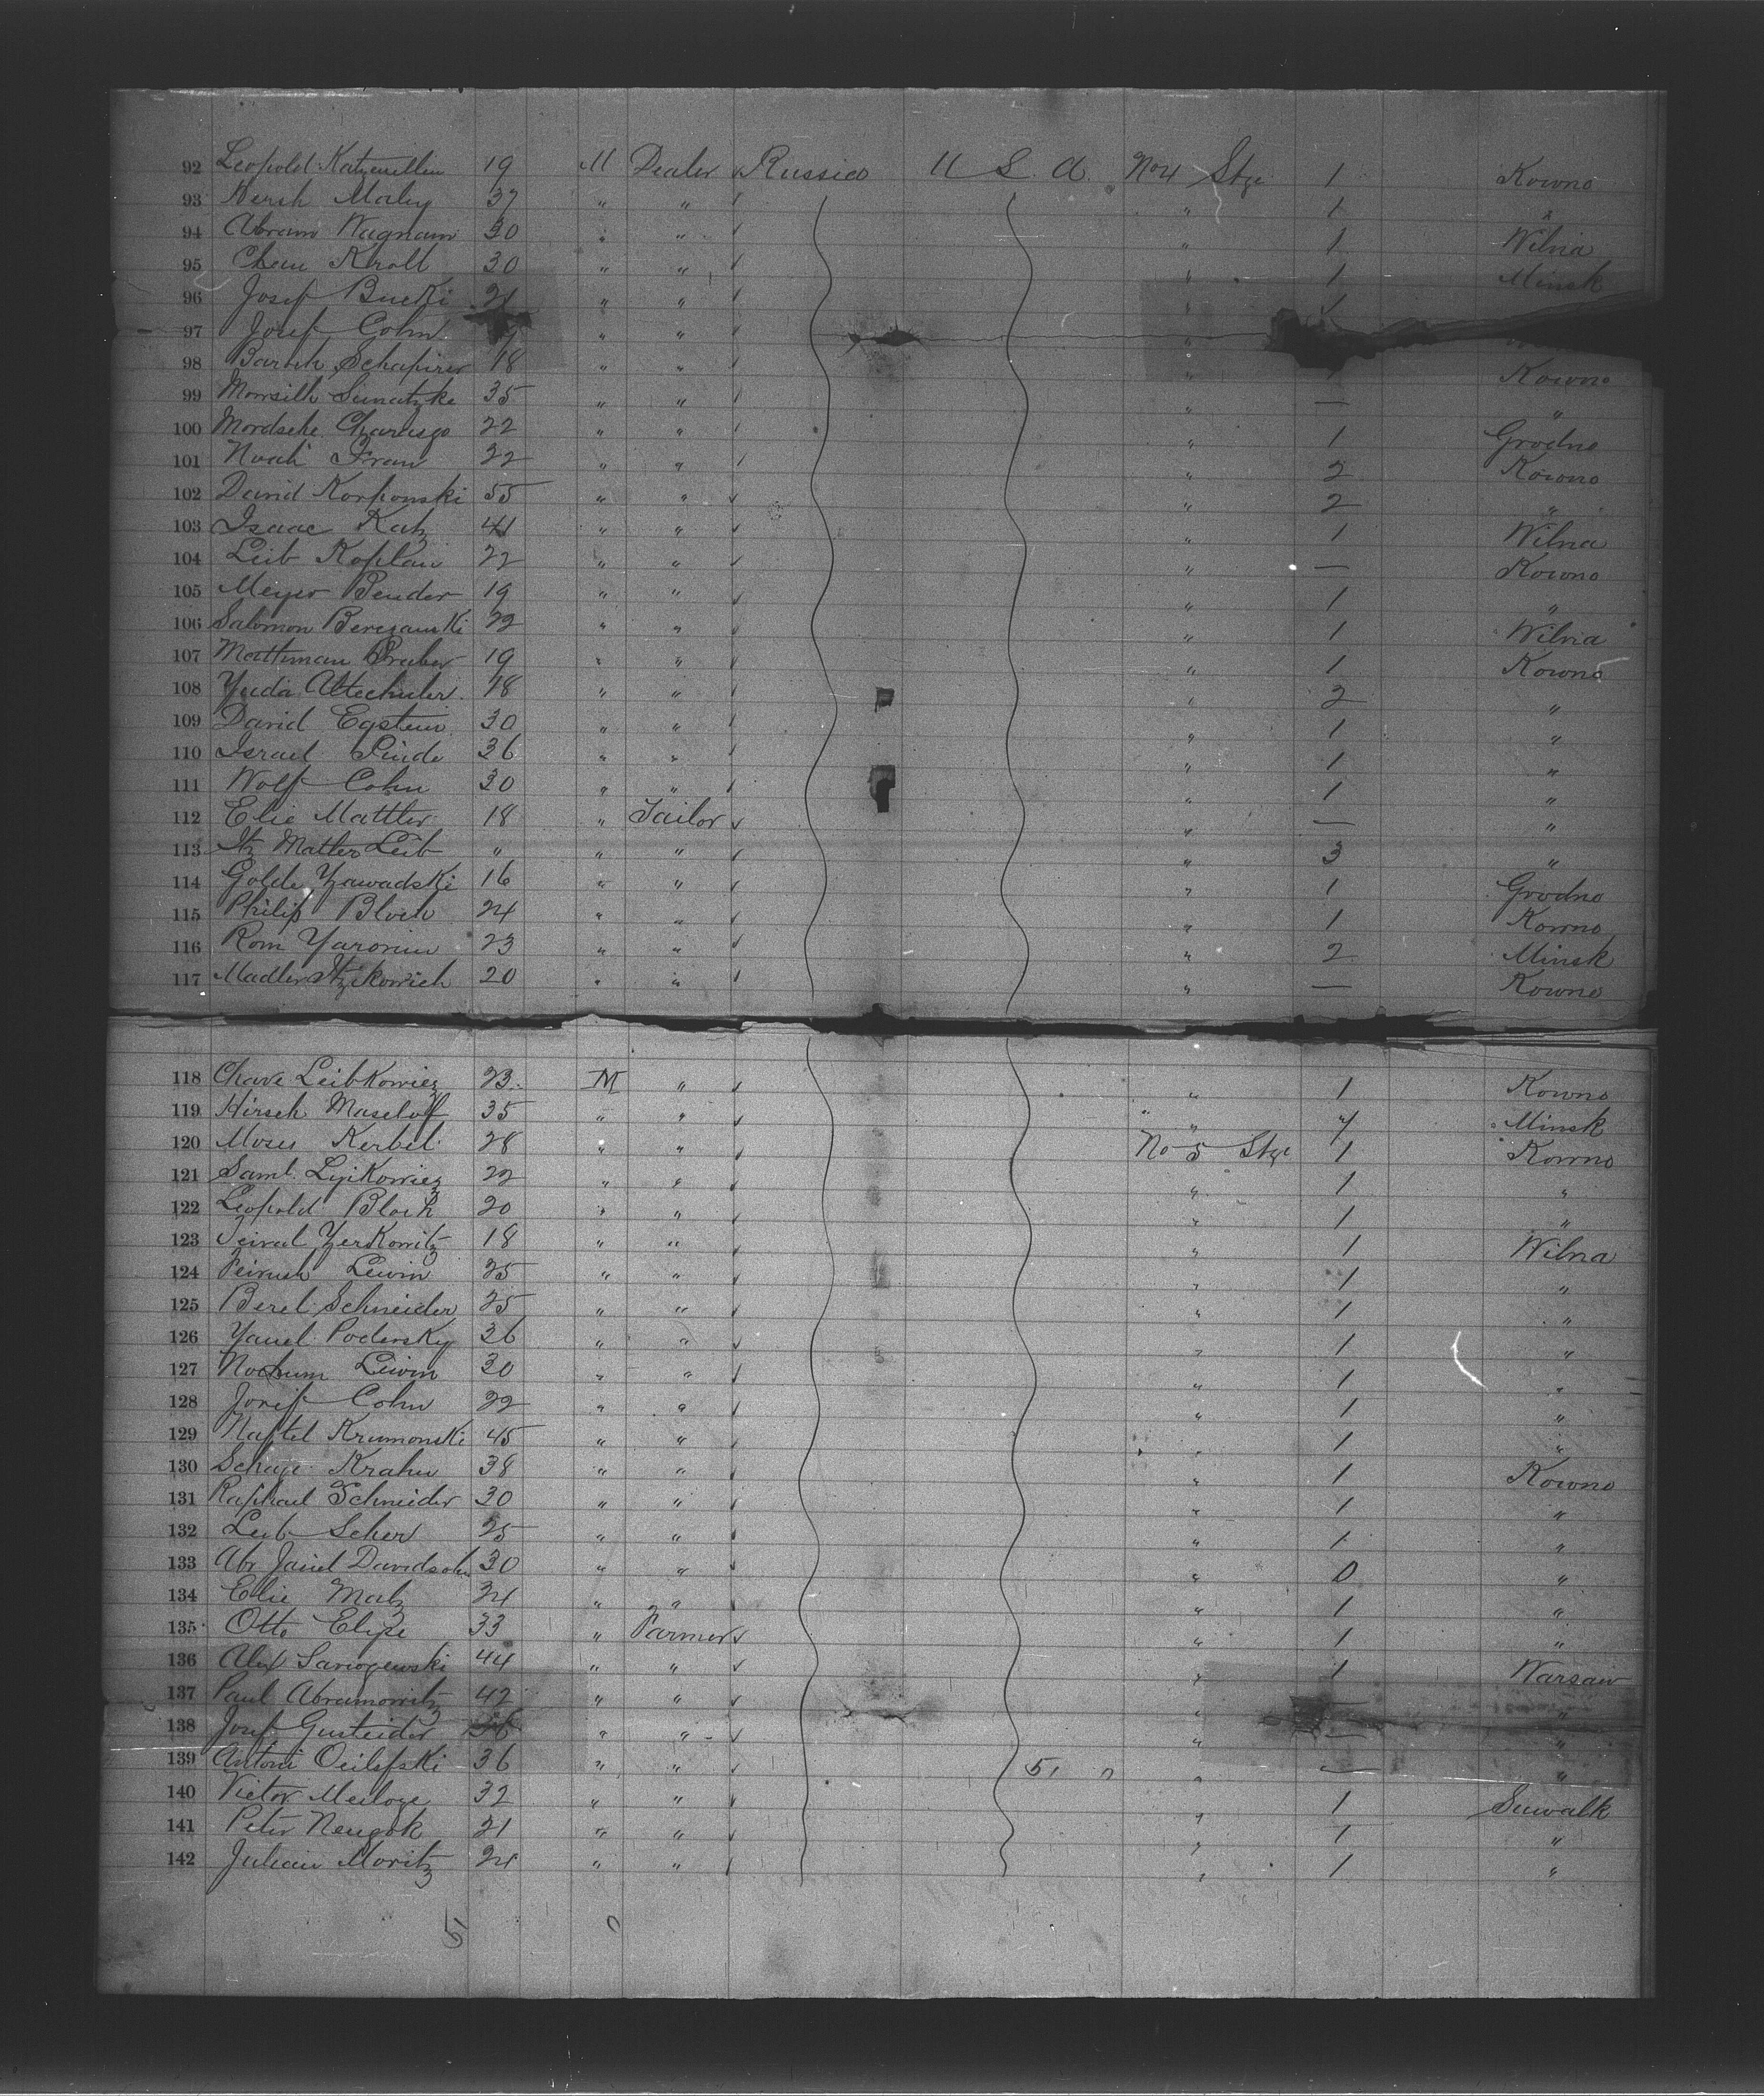 92 Leopold Katzenellin 19 M Dealer Russia U. S. A. No 4 Stge 1 Kowno
93 Hersh Maley 37 " " " 1 "
94 Abram Wagnam 30 " " " 1 Wilna
95 Chem Kroll 30 " " " 1 Minsk
96 Josef Bucki 21 " " " 1
97 Josef Cohn " " "
98 Baruch Schapirer 18 " " " 1 Kowno
99 35 " " " — "
100 Mordsche 22 " " " 1 Grodno
101 Noah Fran 22 " " " 2 Kowno
102 David Korponski 55 " " " 2 "
103 Isaac Katz 41 " " " 1 Wilna
104 Leib Koplan 22 " " " — Kowno
105 Meyer Bender 19 " " " 1 "
106 Salomon 22 " " " 1 Wilna
107 Mathman Gruber 19 " " " 1 Kowno
108 Yuda Altschuler 18 " " " 2 "
109 David Epstein 30 " " " 1 "
110 Israel 36 " " " 1 "
111 Wolf Cohn 30 " " " 1 "
112 Elie Mattler 18 " Tailor " — "
113 Itz Matler Leib " " " " 3 "
114 Golde Zawadski 16 " " " 1 Grodno
115 Philip Bloch 24 " " " 1 Kowno
116 Rom Yaronin 23 " " " 2 Minsk
117 Madler Itzikowich 20 " " " — Kowno
118 Chave Leibkowiez 23 M " " 1 Kowno
119 Hirsch Maseloff 35 " " " 4 Minsk
120 Moses Kerbel 28 " " No 5 Stge 1 Kowno
121 Saml. 22 " " " 1 "
122 Leopold Bloch 20 " " " 1 "
123 Zerkowitz 18 " " " 1 Wilna
124 Lewin 25 " " " 1 "
125 Berel Schneider 25 " " " 1 "
126 Yanel Podersky 36 " " " 1 "
127 Nochum Lewin 30 " " " 1 "
128 Josif Cohn 22 " " " 1 "
129 Naftel Krumonski 45 " " " 1 "
130 Schaje Krahn 38 " " " 1 Kowno
131 Raphael Schneider 30 " " " 1 "
132 Leib Scher 25 " " " 1 "
133 Abr. Janel Davidsohn 30 " " " 0 "
134 Elie Matz 24 " " " 1 "
135 Otto 33 " Farmer " 1 "
136 Alex 44 " " " 1 Warsaw
137 Paul Abramowitz 42 " " " "
138 Josef 36 " " " — "
139 Antoni 36 " " 51 " — "
140 Victor 32 " " " 1 Suwalk
141 Peter 21 " " " 1 "
142 Julian Moritz 24 " " " 1 "
51 0